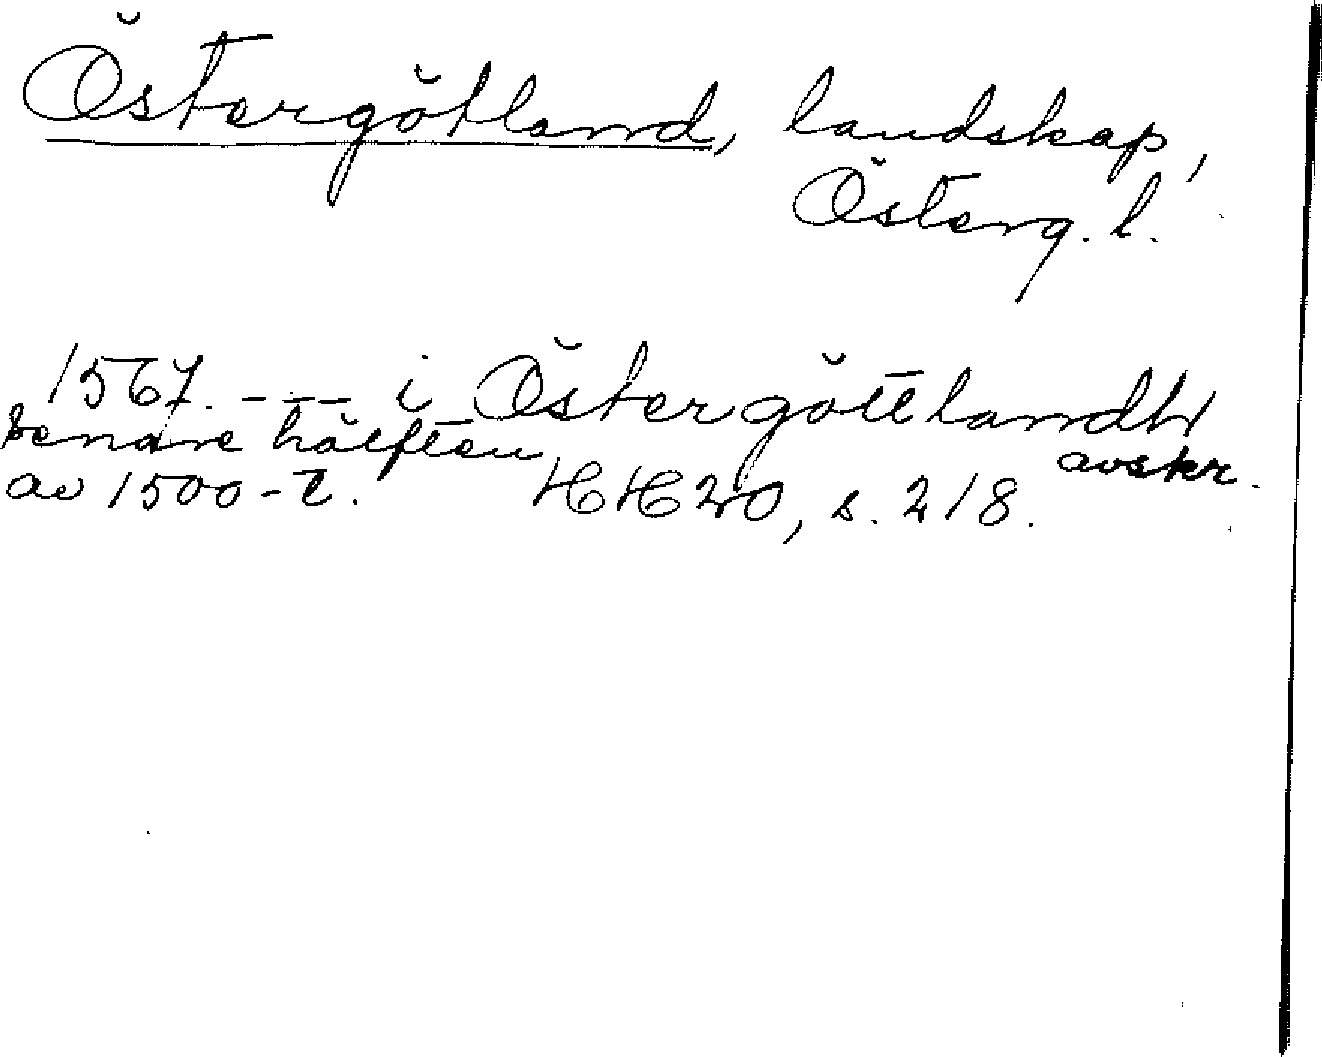 Östergötland, landskap,
Österg. l.
1567. --- i Östergöttlandh
senare hälften avskr.
av 1500-t. HH 20, s. 218.